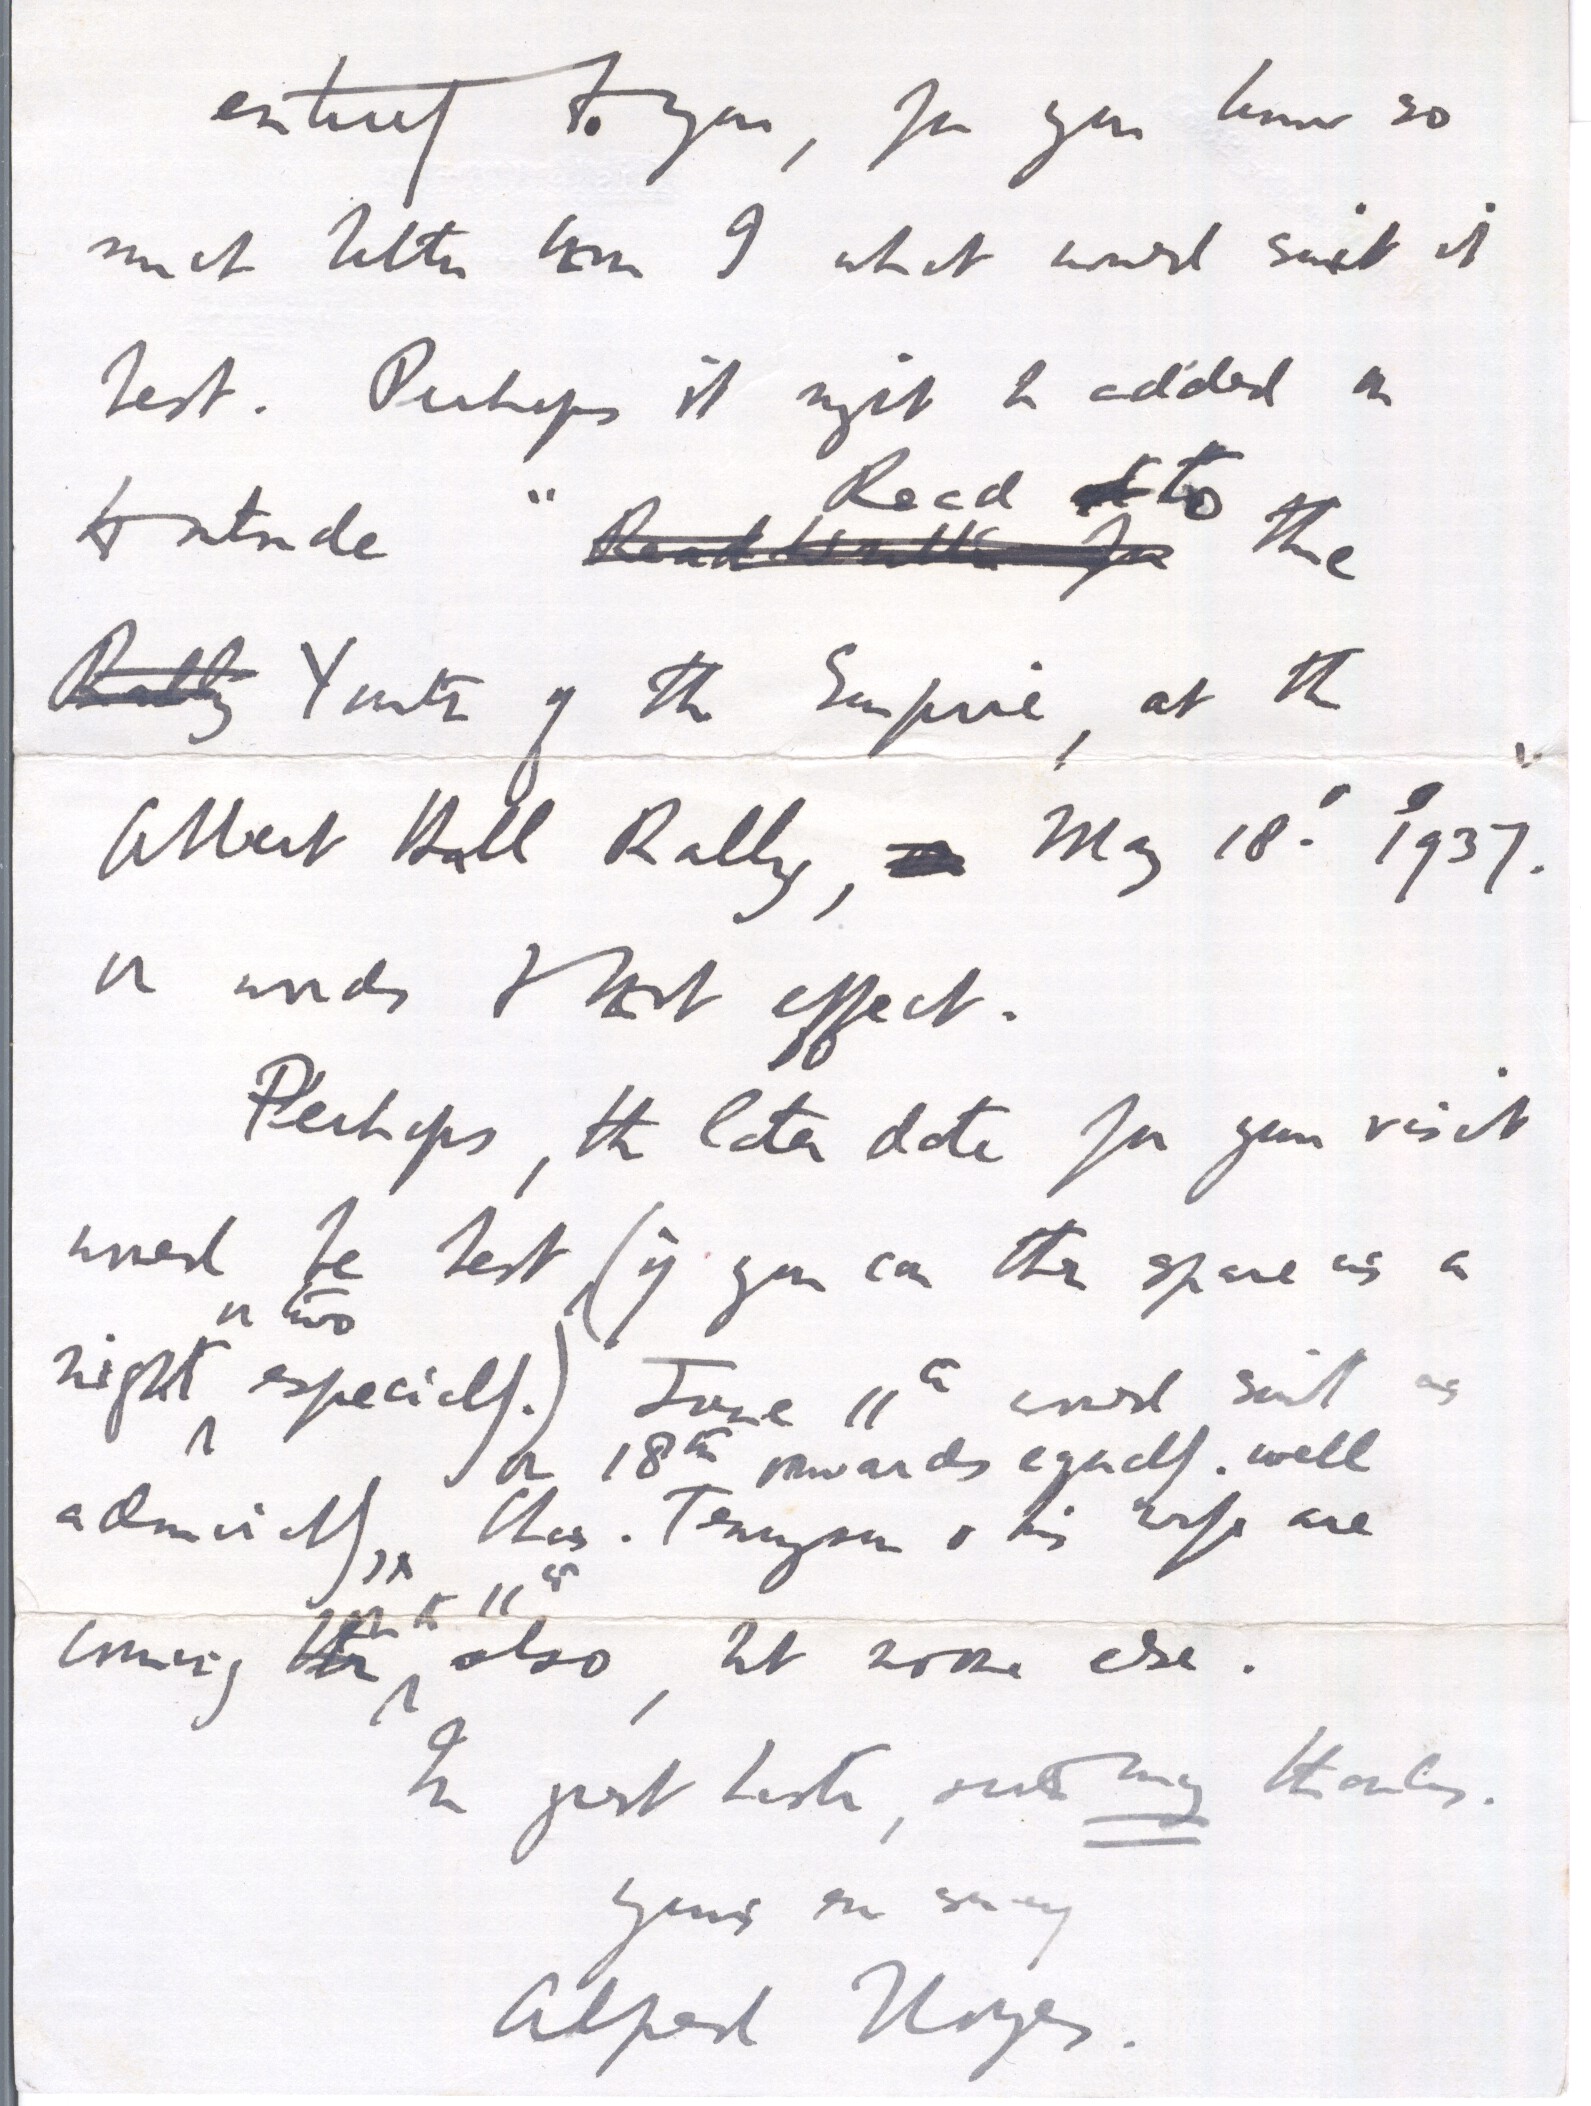 entirely to you, for you know so
much better than I what would suit it
best. Perhaps it might be added as
footnote " Read to
Read Written for the
Rally Youth of the Empire, at the
Albert Hall Rally, May 18. 1937.
or words to that effect.
Perhaps, the later date for your visit
would be best (if you can then spare us a
or two
night especially.) June 11th would suit us
or 18th onwards equally. well
admirably, Chas. Tennyson & his wife are
on the 11th
coming also, but none else.
In great haste, with my thanks.
yours
Alfred Noyes.